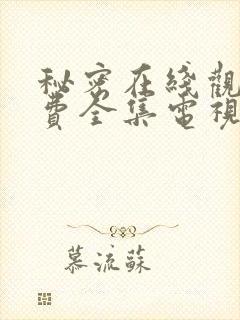 秘密在綫觀
費全集電視
慕流蘇